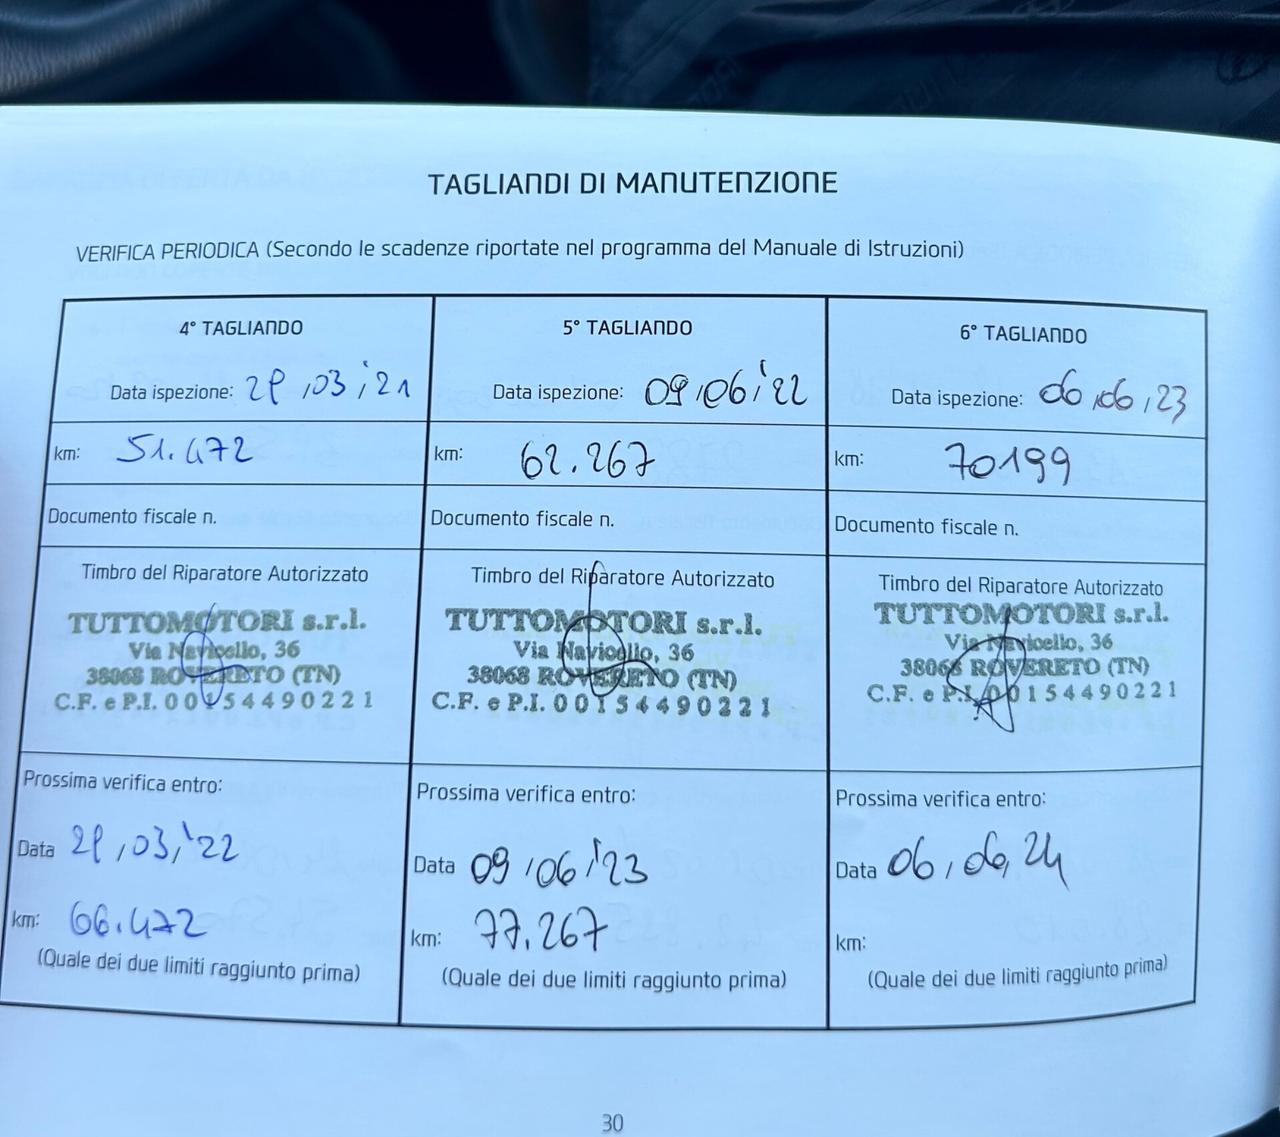 TAGLIANDI DI MANUTENZIONE
VERIFICA PERIODICA (Secondo le scadenze riportate nel programma del Manuale di Istruzioni)
4° TAGLIANDO
Data ispezione: 29,03,'21
km: 51.472
Documento fiscale n.
Timbro del Riparatore Autorizzato
TUTTOMOTORI s.r.l.
Via Navicello, 36
38068 ROVERETO (TN)
C.F. e P.I. 00154490221
Prossima verifica entro:
Data 29,03,'22
km: 66.472
(Quale dei due limiti raggiunto prima)
5° TAGLIANDO
Data ispezione: 09,06,'22
km: 62.267
Documento fiscale n.
Timbro del Riparatore Autorizzato
TUTTOMOTORI s.r.l.
Via Navicello, 36
38068 ROVERETO (TN)
C.F. e P.I. 00154490221
Prossima verifica entro:
Data 09,06,'23
km: 77.267
(Quale dei due limiti raggiunto prima)
6° TAGLIANDO
Data ispezione: 06,06,23
km: 70199
Documento fiscale n.
Timbro del Riparatore Autorizzato
TUTTOMOTORI s.r.l.
Via Navicello, 36
38068 ROVERETO (TN)
C.F. e P.I. 00154490221
Prossima verifica entro:
Data 06,06,24
km:
(Quale dei due limiti raggiunto prima)
30